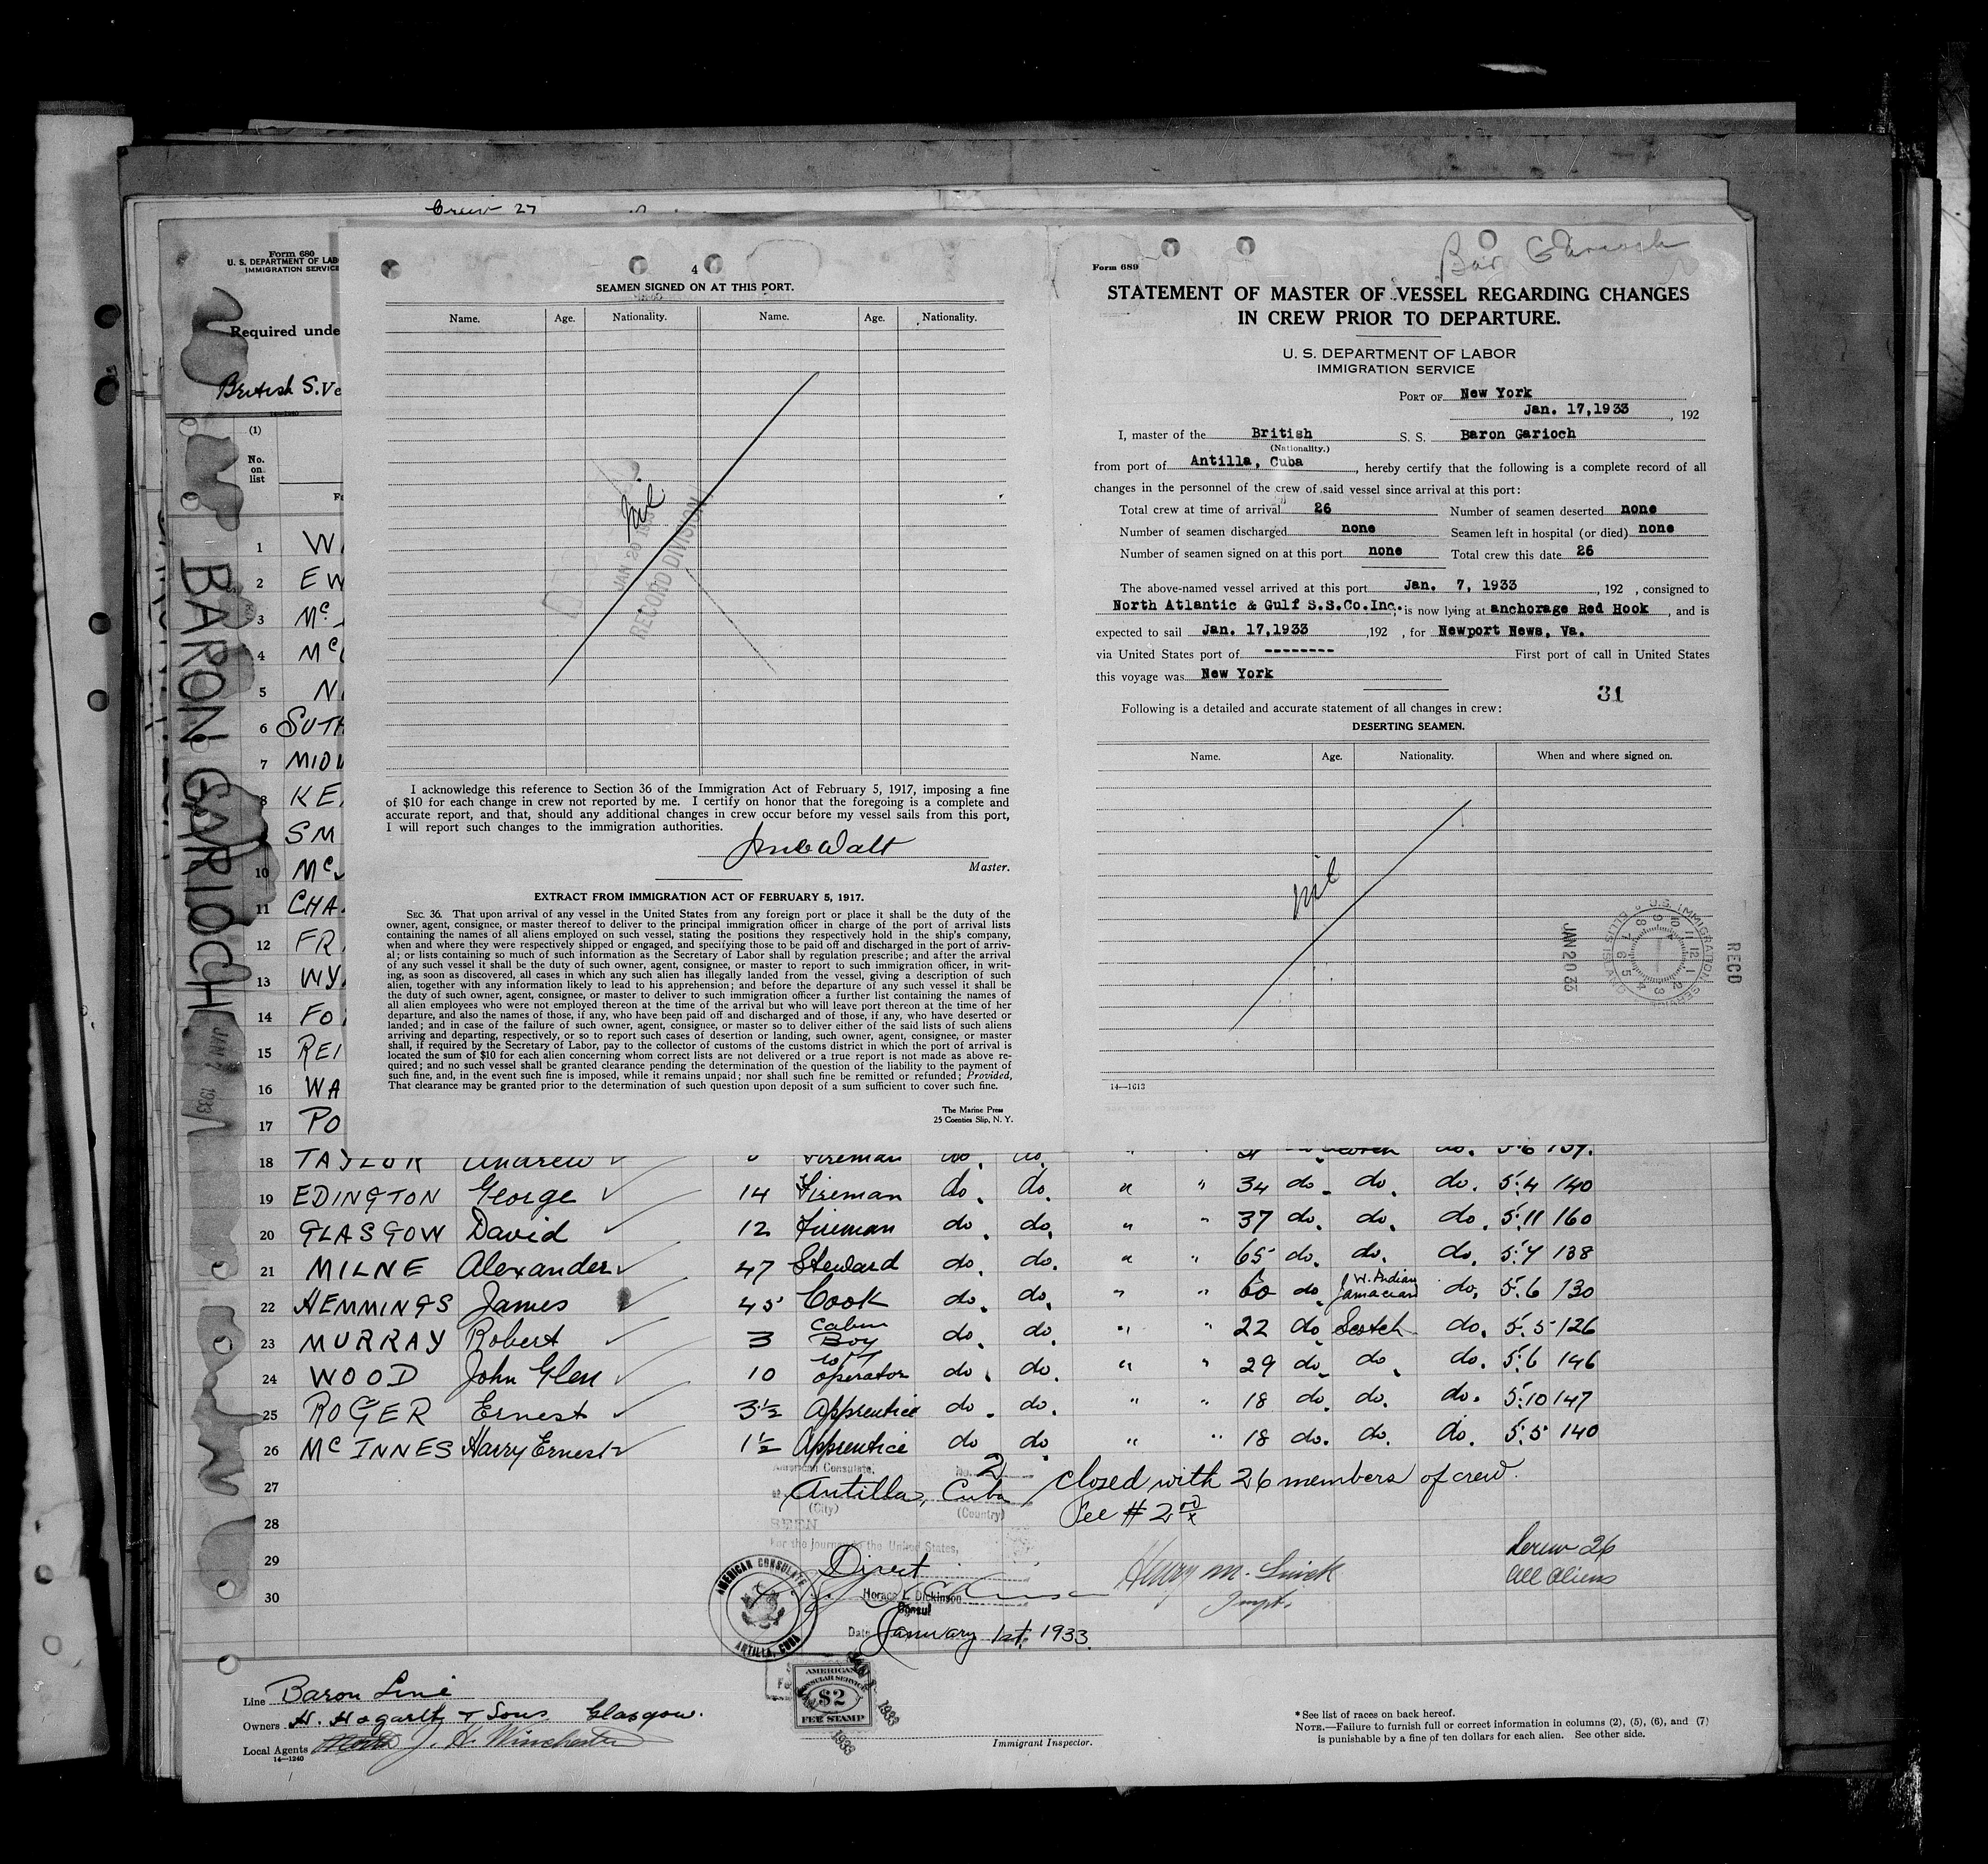 Crew 27
Form 680
U. S. DEPARTMENT OF LAB
IMMIGRATION SERVICE
Required unde
British S. Ve
14—1240
(1)
No.
on
list
BARON GARIOCH
JAN 7 1933
1 W
2 EW
3 Mc
4 Mc
5 N
6 SUTH
7 MIDW
8 KE
SM
10 Mc
11 CHA
12 FR
13 WY
14 FO
15 REI
16 WA
17 PO
4
SEAMEN SIGNED ON AT THIS PORT.
Name. Age. Nationality. Name. Age. Nationality.
Nil
JAN 20 193
RECORD DIVISION
I acknowledge this reference to Section 36 of the Immigration Act of February 5, 1917, imposing a fine
of $10 for each change in crew not reported by me. I certify on honor that the foregoing is a complete and
accurate report, and that, should any additional changes in crew occur before my vessel sails from this port,
I will report such changes to the immigration authorities.
Master.
EXTRACT FROM IMMIGRATION ACT OF FEBRUARY 5, 1917.
SEC. 36. That upon arrival of any vessel in the United States from any foreign port or place it shall be the duty of the
owner, agent, consignee, or master thereof to deliver to the principal immigration officer in charge of the port of arrival lists
containing the names of all aliens employed on such vessel, stating the positions they respectively hold in the ship's company,
when and where they were respectively shipped or engaged, and specifying those to be paid off and discharged in the port of arriv-
al; or lists containing so much of such information as the Secretary of Labor shall by regulation prescribe; and after the arrival
of any such vessel it shall be the duty of such owner, agent, consignee, or master to report to such immigration officer, in writ-
ing, as soon as discovered, all cases in which any such alien has illegally landed from the vessel, giving a description of such
alien, together with any information likely to lead to his apprehension; and before the departure of any such vessel it shall be
the duty of such owner, agent, consignee, or master to deliver to such immigration officer a further list containing the names of
all alien employees who were not employed thereon at the time of the arrival but who will leave port thereon at the time of her
departure, and also the names of those, if any, who have been paid off and discharged and of those, if any, who have deserted or
landed; and in case of the failure of such owner, agent, consignee, or master so to deliver either of the said lists of such aliens
arriving and departing, respectively, or so to report such cases of desertion or landing, such owner, agent, consignee, or master
shall, if required by the Secretary of Labor, pay to the collector of customs of the customs district in which the port of arrival is
located the sum of $10 for each alien concerning whom correct lists are not delivered or a true report is not made as above re-
quired; and no such vessel shall be granted clearance pending the determination of the question of the liability to the payment of
such fine, and, in the event such fine is imposed, while it remains unpaid; nor shall such fine be remitted or refunded; Provided,
That clearance may be granted prior to the determination of such question upon deposit of a sum sufficient to cover such fine.
The Marine Press
25 Coenties Slip, N. Y.
Bar Garioch
Form 689
STATEMENT OF MASTER OF VESSEL REGARDING CHANGES
IN CREW PRIOR TO DEPARTURE.
U. S. DEPARTMENT OF LABOR
IMMIGRATION SERVICE
PORT OF New York
Jan. 17,1933, 192
I, master of the British S. S. Baron Garioch
(Nationality.)
from port of Antilla, Cuba, hereby certify that the following is a complete record of all
changes in the personnel of the crew of said vessel since arrival at this port:
Total crew at time of arrival 26 Number of seamen deserted none
Number of seamen discharged none Seamen left in hospital (or died) none
Number of seamen signed on at this port none Total crew this date 26
The above-named vessel arrived at this port Jan. 7, 1933, 192 , consigned to
North Atlantic & Gulf S.S.Co.Inc.; is now lying at anchorage Red Hook, and is
expected to sail Jan. 17,1933 ,192 , for Newport News, Va.
via United States port of -------- First port of call in United States
this voyage was New York
31
Following is a detailed and accurate statement of all changes in crew:
DESERTING SEAMEN.
Name. Age. Nationality. When and where signed on.
nil
RECD
U.S. IMMIGRATION SERVICE ELLIS ISLAND
JAN 20 33
14—1613
18 TAYLOR Andrew Fireman do. do. " " 5.6 139.
19 EDINGTON George 14 Fireman do. do. " " 34 do. do. do. 5.4 140
20 GLASGOW David 12 Fireman do. do. " " 37 do. do. do. 5.11 160
21 MILNE Alexander 47 Steward do. do. " " 65 do. do. do. 5.7 138
22 HEMMINGS James 45 Cook do. do. " " 60 do. W. Indian Jamacian do. 5.6 130
23 MURRAY Robert 3 Cabin Boy do. do. " " 22 do Scotch do. 5.5 126
24 WOOD John Glen 10 operator do. do. " " 29 do. do. do. 5.6 146
25 ROGER Ernest 3½ Apprentice do. do. " " 18 do. do. do. 5.10 147
26 McINNES Harry Ernest 1½ Apprentice do do " " 18 do. do. do. 5.5 140
27
28
29
30
American Consulate, No. 2
Antilla, Cuba
(City) (Country)
closed with 26 members of crew.
Fee # 2
SEEN
For the journey to the United States,
Direct
Horace J. Dickinson
Consul
Date January 1st, 1933.
AMERICAN CONSULATE
ANTILLA, CUBA
Crew 26
All aliens
AMERICAN
CONSULAR SERVICE
$2
FEE STAMP
1933
1933
Line Baron Line
Owners H. Hogarth & Sons Glasgow.
Local Agents J. H. Winchester
14—1240
Immigrant Inspector.
* See list of races on back hereof.
NOTE.—Failure to furnish full or correct information in columns (2), (5), (6), and (7)
is punishable by a fine of ten dollars for each alien. See other side.